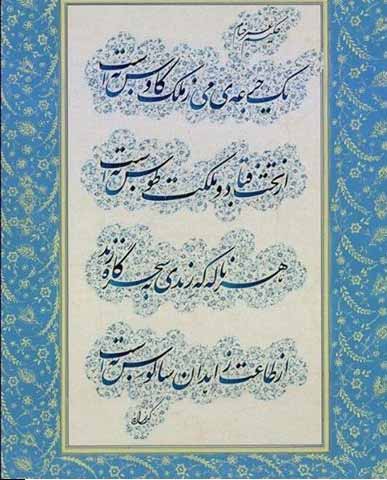 حکیم عمر خیام
یک جرعه‌ی می ز ملک کاوس به است
از تخت قباد و ملکت طوس به است
هر ناله که رندی به سحرگاه زند
از طاعت زاهدان سالوس به است